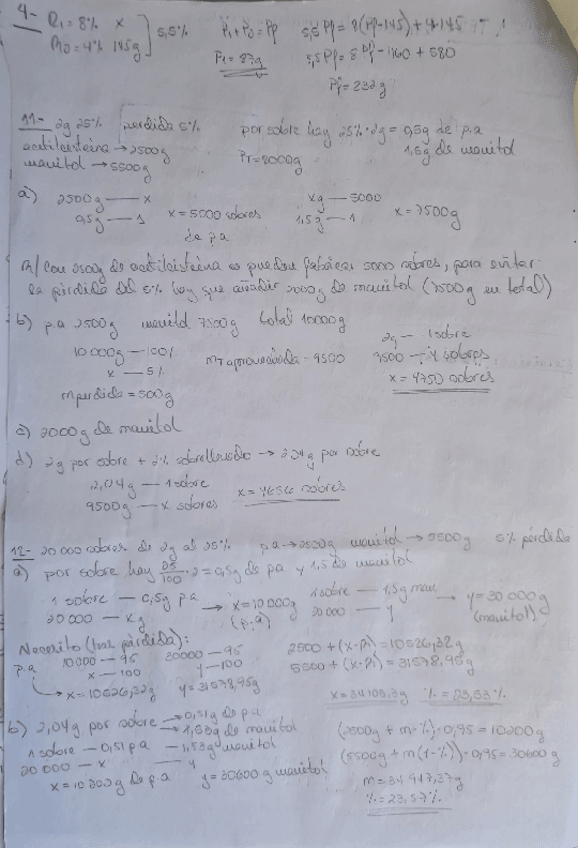 4- R1 = 8% x ] 5,5% P1 + P0 = Pp 5,5 Pp = 8(Pp-145) + 4·145
R0 = 4% 145g P1 = 87g 5,5 Pp = 8 Pp - 1160 + 580
Pp = 232g
11- 2g 25% perdida 5% por sobre hay 25%·2g = 0,5g de p.a
acetilcisteína → 2500g PT = 8000g 1,5g de manitol
manitol → 5500g
a) 2500g — x xg — 5000
0,5g — 1 x = 5000 sobres 1,5g — 1 x = 7500g
de pa
R/ Con 2500g de acetilcisteína se pueden fabricar 5000 sobres, para evitar
la pérdida del 5% hay que añadir 2000g de manitol (7500g en total)
b) p.a 2500g manitol 7500g total 10000g
10000g — 100% mT aprovechada = 9500 2g — 1 sobre
x — 5% 9500 — x sobres
m perdida = 500g x = 4750 sobres
c) 2000g de manitol
d) 2g por sobre + 2% sobrellenado → 2,04g por sobre
2,04g — 1 sobre x = 4656 sobres
9500g — x sobres
12- 20 000 sobres de 2g al 25% p.a → 2500g manitol → 5500g 5% pérdida
a) por sobre hay 25/100 · 2 = 0,5g de pa y 1,5 de manitol
1 sobre — 0,5g p.a → x = 10 000g 1 sobre — 1,5g man → y = 30 000g
20 000 — xg (p.a) 20 000 — y (manitol)
Necesito (tras pérdida):
p.a 10 000 — 95 30000 — 95 2500 + (x·P1) = 10526,32g
x — 100 y — 100 5500 + (x-P1) = 31578,95g
→ x = 10526,32g y = 31578,95g x = 34105,3g % = 23,53%
b) 2,04g por sobre → 0,51g de p.a
→ 1,53g de manitol (2500g + m·%)·0,95 = 10200g
1 sobre — 0,51 p.a — 1,53g manitol (5500g + m(1-%))·0,95 = 30600g
20 000 — x — y m = 34947,37g
x = 10 200g de p.a y = 30600g manitol % = 23,57%